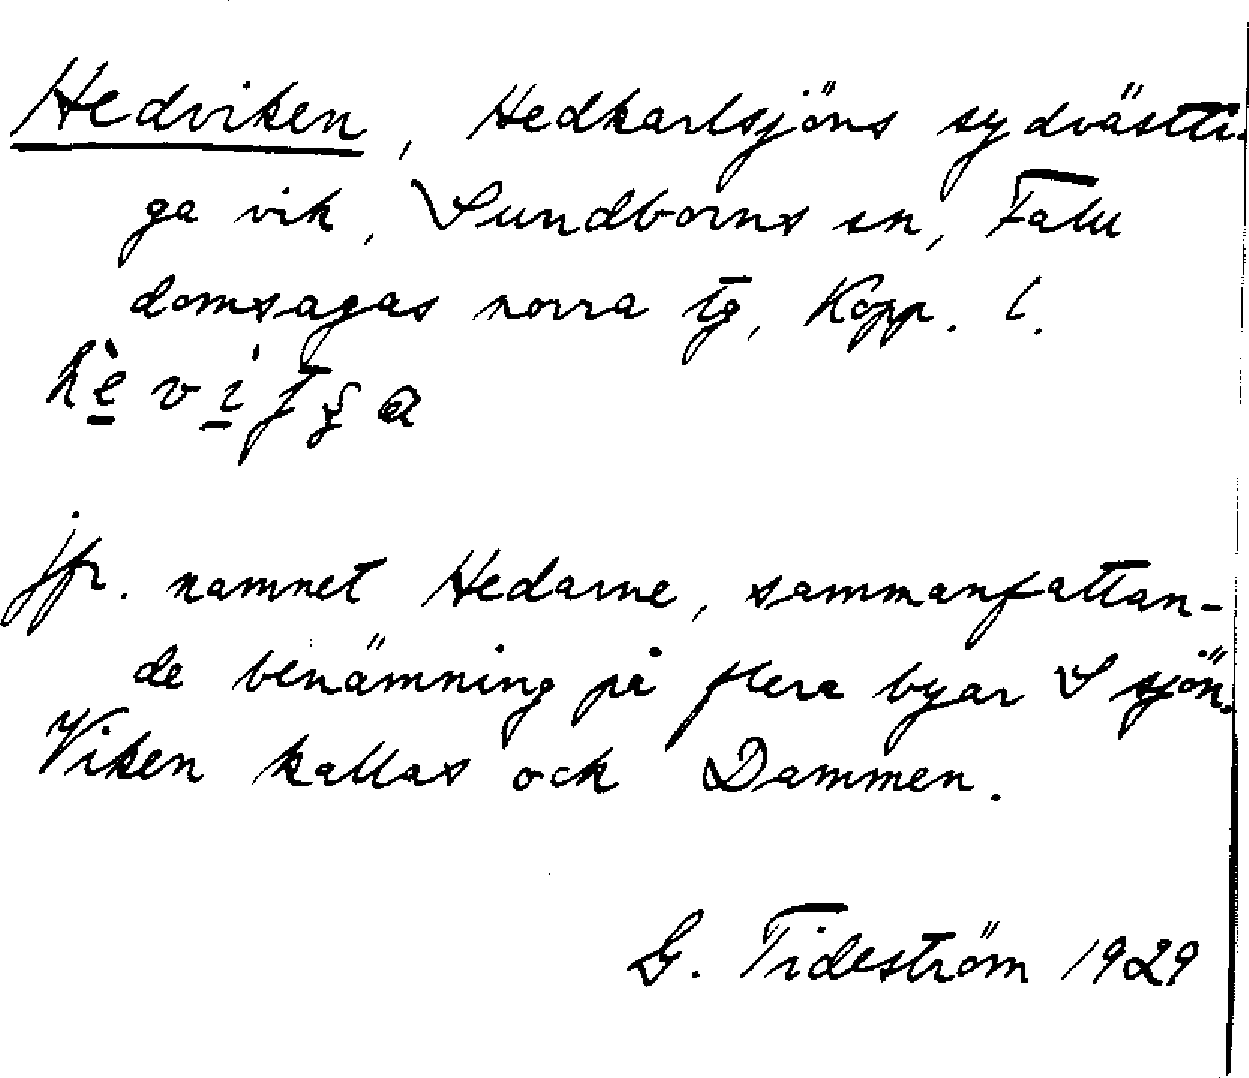 Hedviken, Hedkarlsjöns sydvästli-
ga vik, Sundborns sn, Falu
domsagas norra tg, Kopp. l.
jfr. namnet Hedarne, sammanfattan-
de benämning på flera byar S sjön.
Viken kallas ock Dammen.
G. Tideström 1929